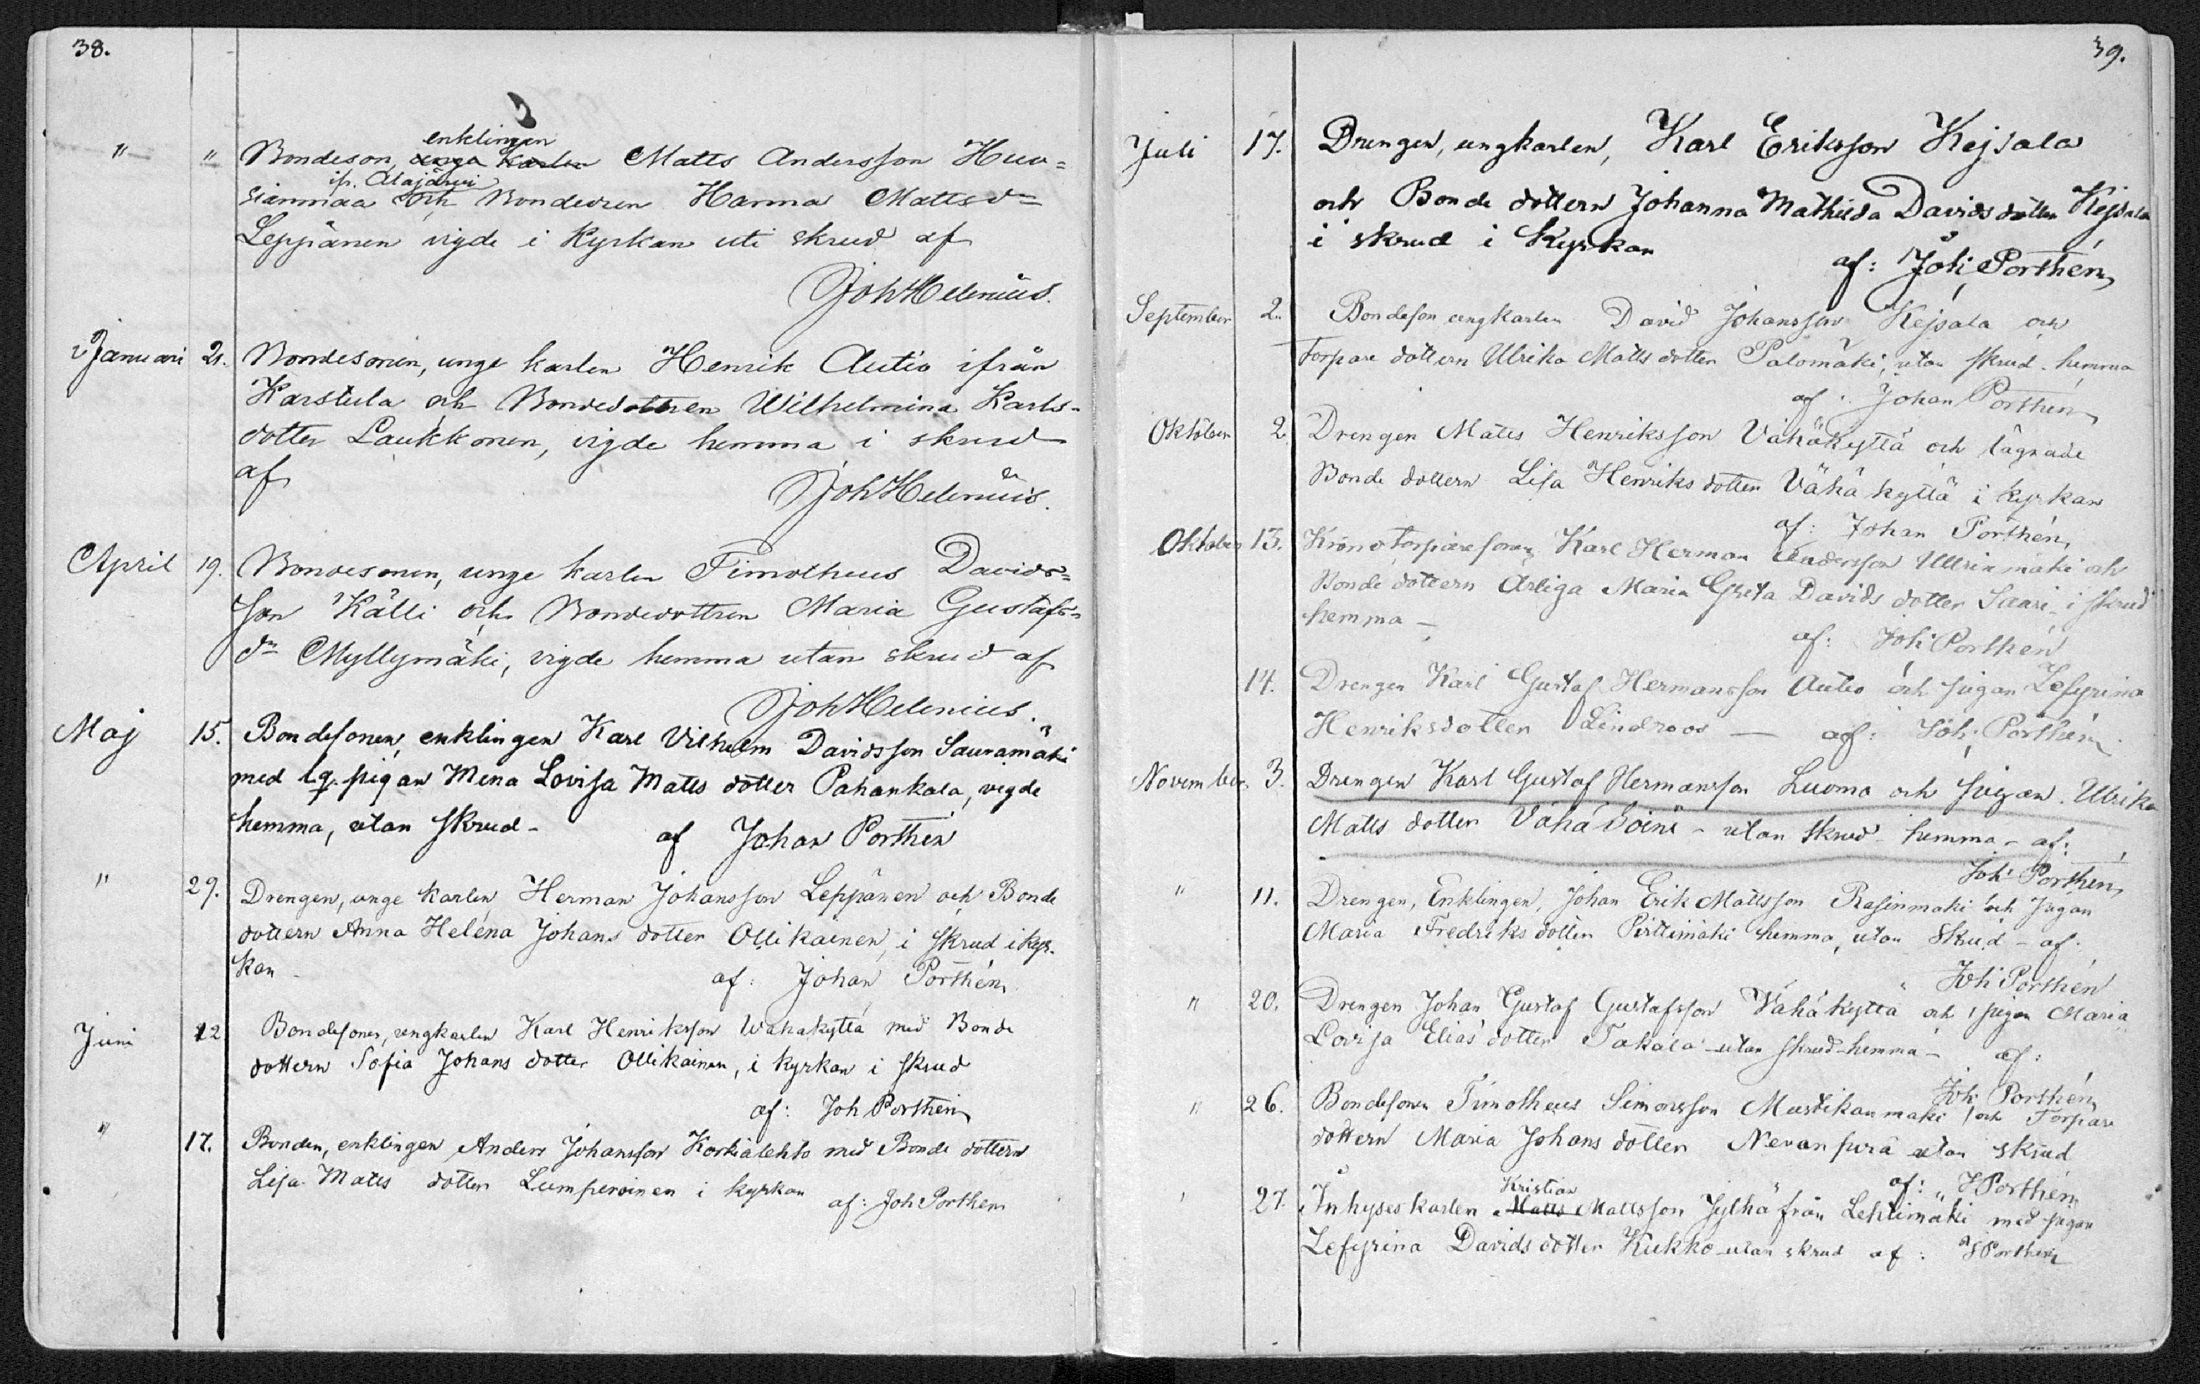 38.
" " Bondeson, enklingen unga karlen Matts Andersson Huu=
sianmaa ifr. Alajärvi och Bondedren Hanna Mattsd=
Leppänen vigde i Kyrkan uti skrud af
Joh Helenius.
Januari 21. Bondesonen, unge karlen Henrik Autio ifrån
Karstula och Bondedottren Wilhelmina Karls-
dotter Laukkonen, vigde hemma i skrud
af
Joh Helenius.
April 19. Bondesonen, unge karlen Timotheus Davids=
son Källi och Bondedottren Maria Gustafs=
dr Myllymäki, vigde hemma utan skrud af
Joh Helenius.
Maj 15. Bondesonen, enklingen Karl Vilhelm Davidsson Sauramäki
med lg. pigan Mena Lovisa Matts dotter Pahankala, vigde
hemma, utan skrud-
af Johan Porthén
" 29. Drengen, unge karlen Herman Johansson Leppänen och Bonde
dottern Anna Helena Johans dotter Ollikainen, i skrud i kyr-
kan -
af: Johan Porthén
Juni 12 Bondesonen, ungkarlen Karl Henriksson Wähäkyttä med Bonde
dottern Sofia Johans dotter Ollikainen, i kyrkan i skrud
af: Joh Porthén
" 17. Bonden, enklingen Anders Johansson Korkialehto med Bonde dottern
Lisa Matts dotter Lumperoinen i kyrkan
af: Joh Porthén
39.
Juli 17. Drengen, ungkarlen, Karl Eriksson Kejsala
och Bonde dottern Johanna Mathilda Davids dotter Kejsala
i skrud i Kyrkan
af: Joh. Porthén
September 2. Bondeson ungkarlen David Johansson Kejsala och
Torpare dottern Ulrika Matts dotter Palomäki, utan skrud. hemma
af: Johan Porthén
Oktober 2 Drengen Matts Henriksson Vähäkyttä och lägrade
Bonde dottern Lisa Henriks dotter Vähäkyttä i kyrkan
af: Johan Porthén,
Oktober 13. Kronotorparesonen Karl Herman Andersson Ullrinmäki och
Bonde dottern Ärliga Maria Greta Davids dotter Saari i skrud
hemma -
af: Joh Porthén
14. Drengen Karl Gustaf Hermansson Autio och pigan Zefyrina
Henriksdotter Lindroos — af: Joh; Porthén
November 3. Drengen Karl Gustaf Hermansson Luoma och pigan. Ulrika
Matts dotter Vähä Soini - utan skrud hemma - af:
Joh Porthén,
" 11. Drengen, Enklingen, Johan Erik Mattsson Rasinmäki och Pigan
Maria Fredriks dotter Pirttimäki hemma, utan skrud - af.
Joh Porthén
" 20. Drengen Johan Gustaf Gustafsson Vähäkyttä och pigan Maria
Lovisa Elias dotter Takala - utan skrud - hemma - af:
Joh Porthén,
" 26. Bondesonen Timotheus Simonsson Mustikanmäki och Torpare
dottern Maria Johans dotter Nevanperä utan skrud
af: J Porthén
27. Inhyseskarlen Kristian Matts Mattsson Jylhä från Lehtimäki med pigan
Zefyrina Davids dotter Kukko - utan skrud af: J Porthén